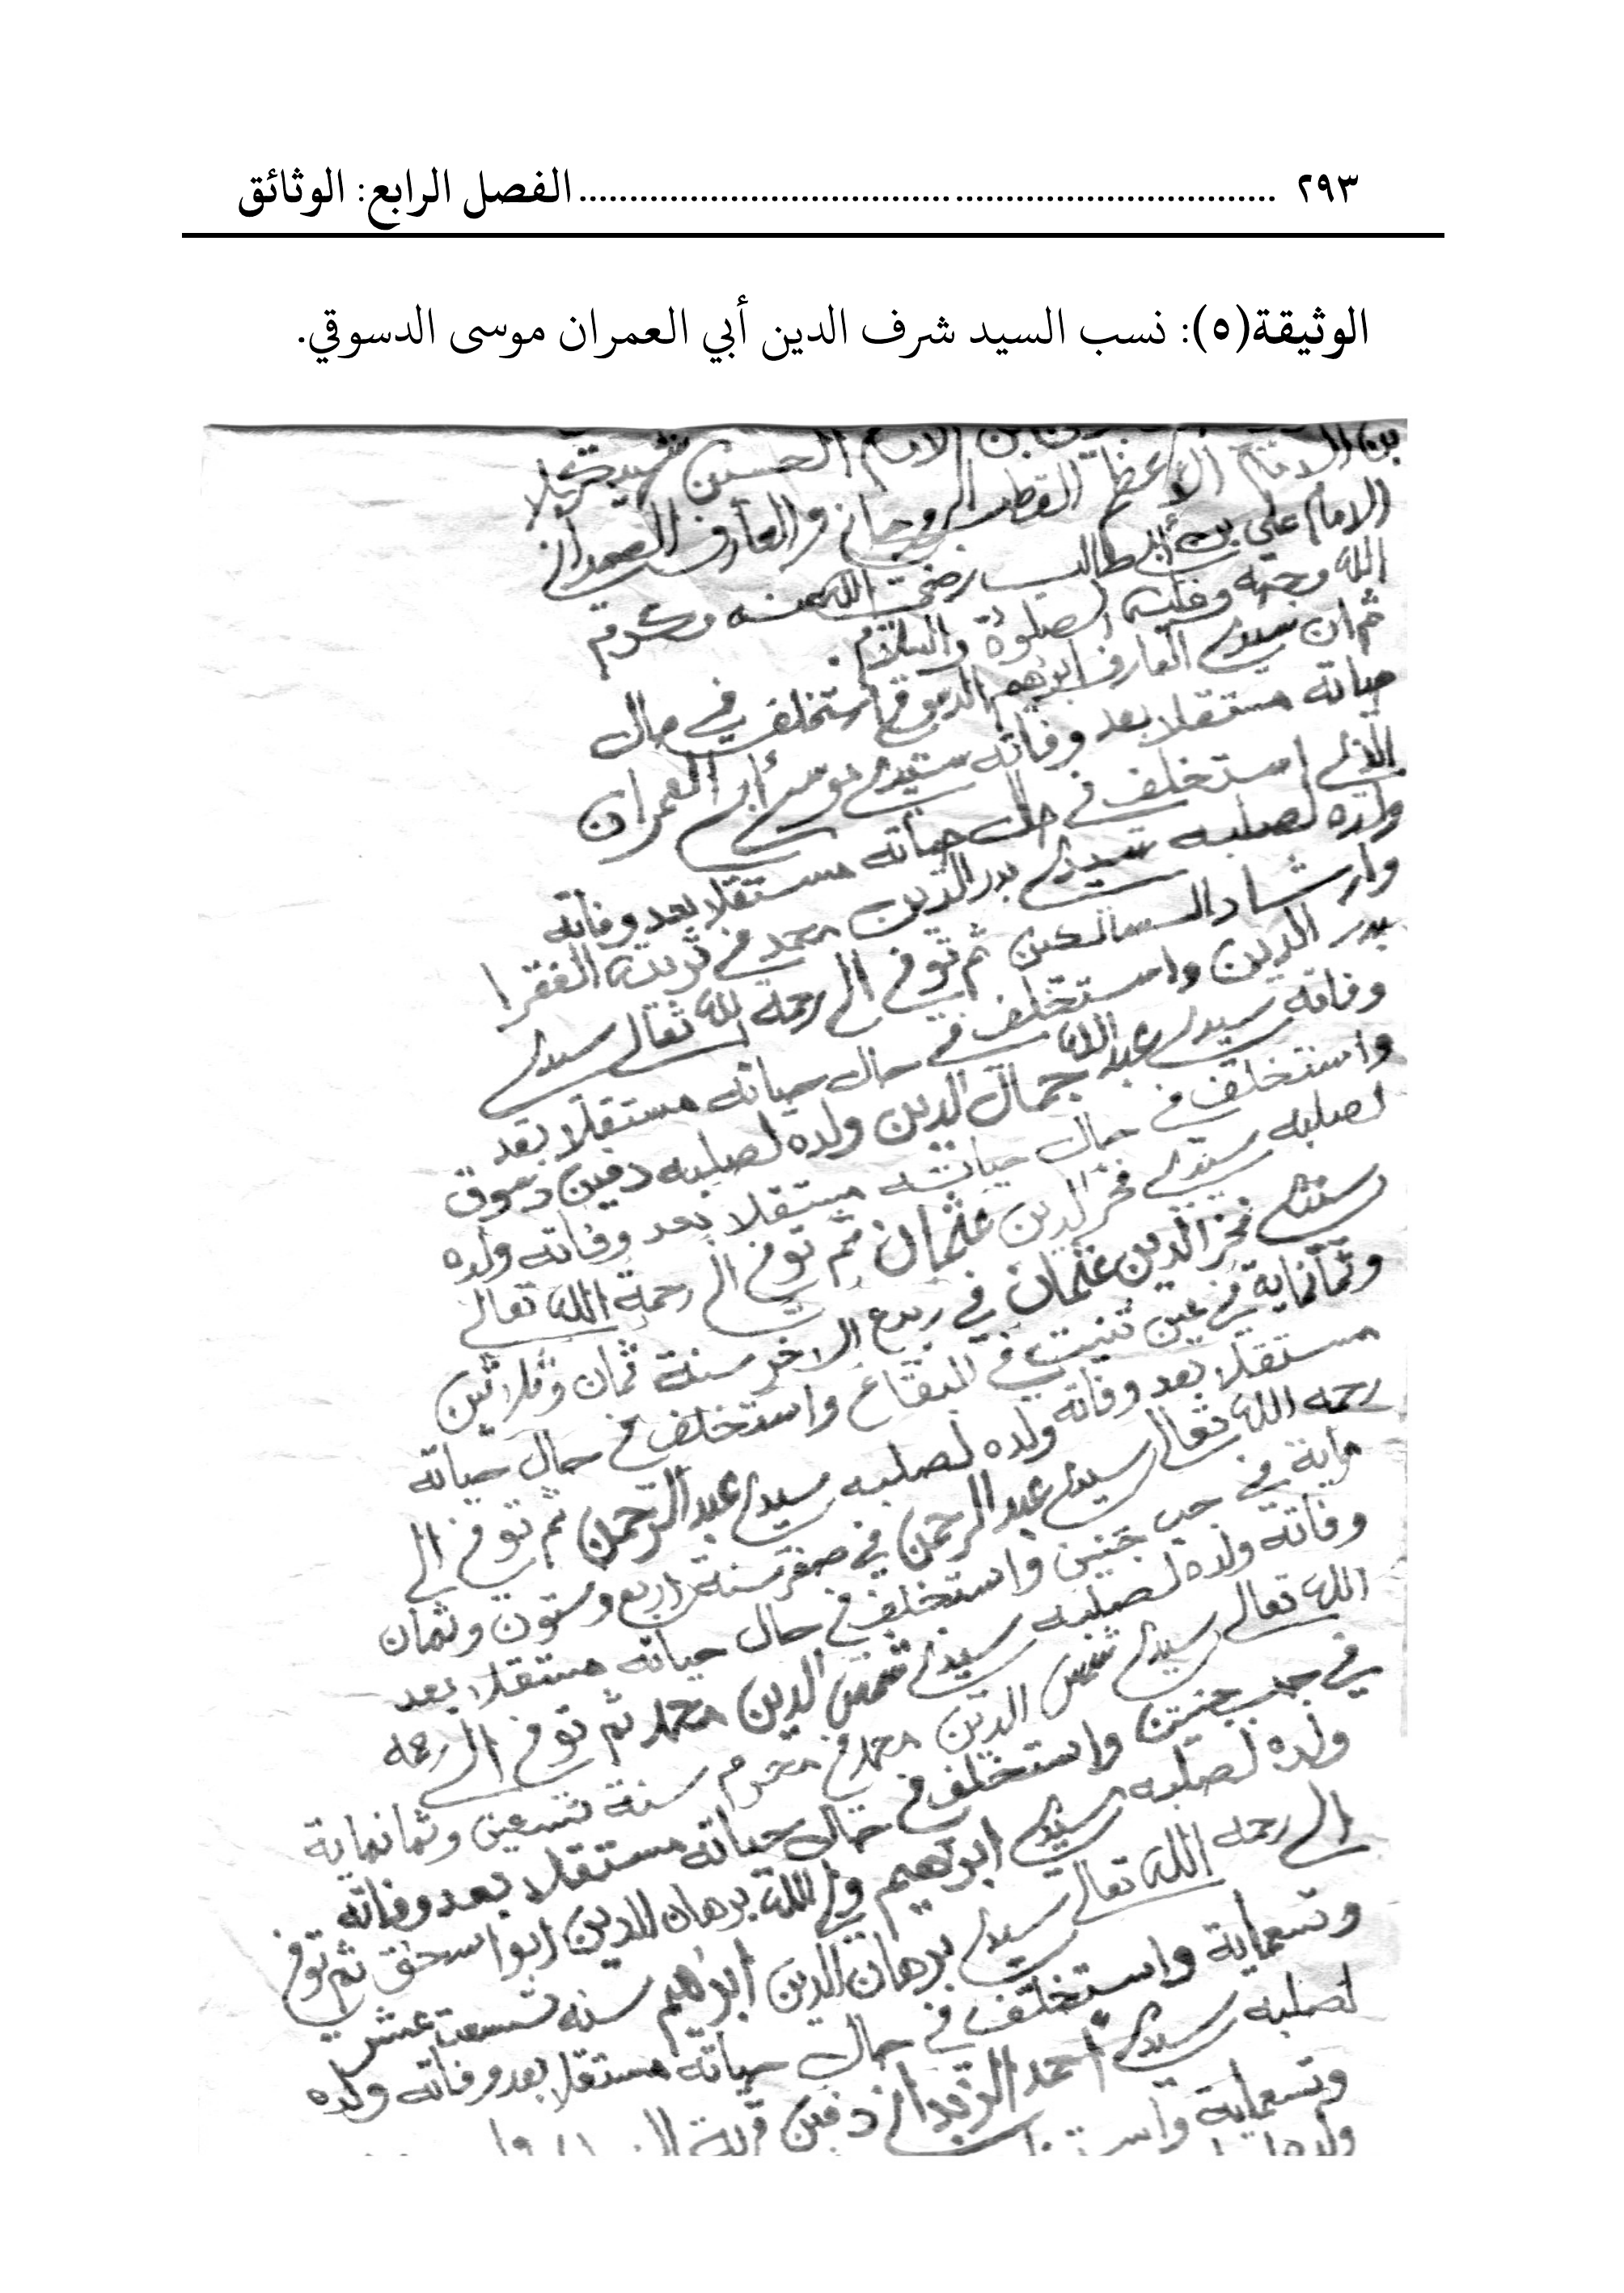 ٢٩٣ ........................................................................ الفصل الرابع: الوثائق
الوثيقة(٥): نسب السيد شرف الدين أبي العمران موسى الدسوقي.
بن الامام الحسين شهيد كربلا
بن الامام الاعظم القطب الروحاني والعارف الصمداني
الامام علي بن أبي طالب رضي الله عنه وكرم
الله وجهه وعليه الصلوة والسلام.
ثم ان سيدي العارف ابرهيم الدسوقي استخلف في حال
حياته مستقلا بعد وفاته سيدي موسى أبي العمران
الذي استخلف في حال حياته مستقلا بعد وفاته
ولده لصلبه سيدي بدر الدين محمد في تربية الفقرا
وارشاد السالكين ثم توفي الى رحمة الله تعالى سيدي
بدر الدين واستخلف في حال حياته مستقلا بعد
وفاته سيدي عبد الله جمال الدين ولده لصلبه دفين دسوق
واستخلف في حال حياته مستقلا بعد وفاته ولده
لصلبه سيدي فخر الدين عثمان ثم توفي الى رحمة الله تعالى
سيدي فخر الدين عثمان في ربيع الاخر سنة ثمان وثلاثين
وثمانماية في عين ثنيت في البقاع واستخلف في حال حياته
مستقلا بعد وفاته ولده لصلبه سيدي عبد الرحمن ثم توفي الى
رحمه الله تعالى سيدي عبد الرحمن في صفر سنة اربع وستون وثمان
ماية في جب جنين واستخلف في حال حياته مستقلا بعد
وفاته ولده لصلبه سيدي شمس الدين محمد ثم توفي الى رحمه
الله تعالى سيدي شمس الدين محمد في محرم سنة تسعين وثمانماية
في جب جنين واستخلف في حال حياته مستقلا بعد وفاته
ولده لصلبه سيدي ابرهيم ولي الله برهان الدين ابو اسحق ثم توفي
الى رحمه الله تعالى سيدي برهان الدين ابرهيم سنه تسعت عشر
وتسعماية واستخلف في حال حياته مستقلا بعد وفاته ولده
لصلبه سيدي احمد الزبداني دفين قرية
وتسعماية